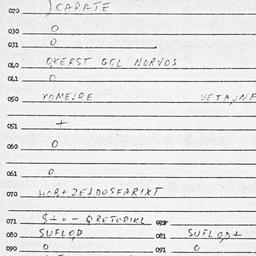 020 )CARATE
030 0
031 0
040 QKERST GCL NORVOS
041 0
050 XOMEJRE VETA,NF
051 +
060 0
061 0
070 HOB+ZEJDOSFARIXT
071 $+=- QRETODIKL
080 SUFLOD 081 SUFLOD+
090 0 091 0